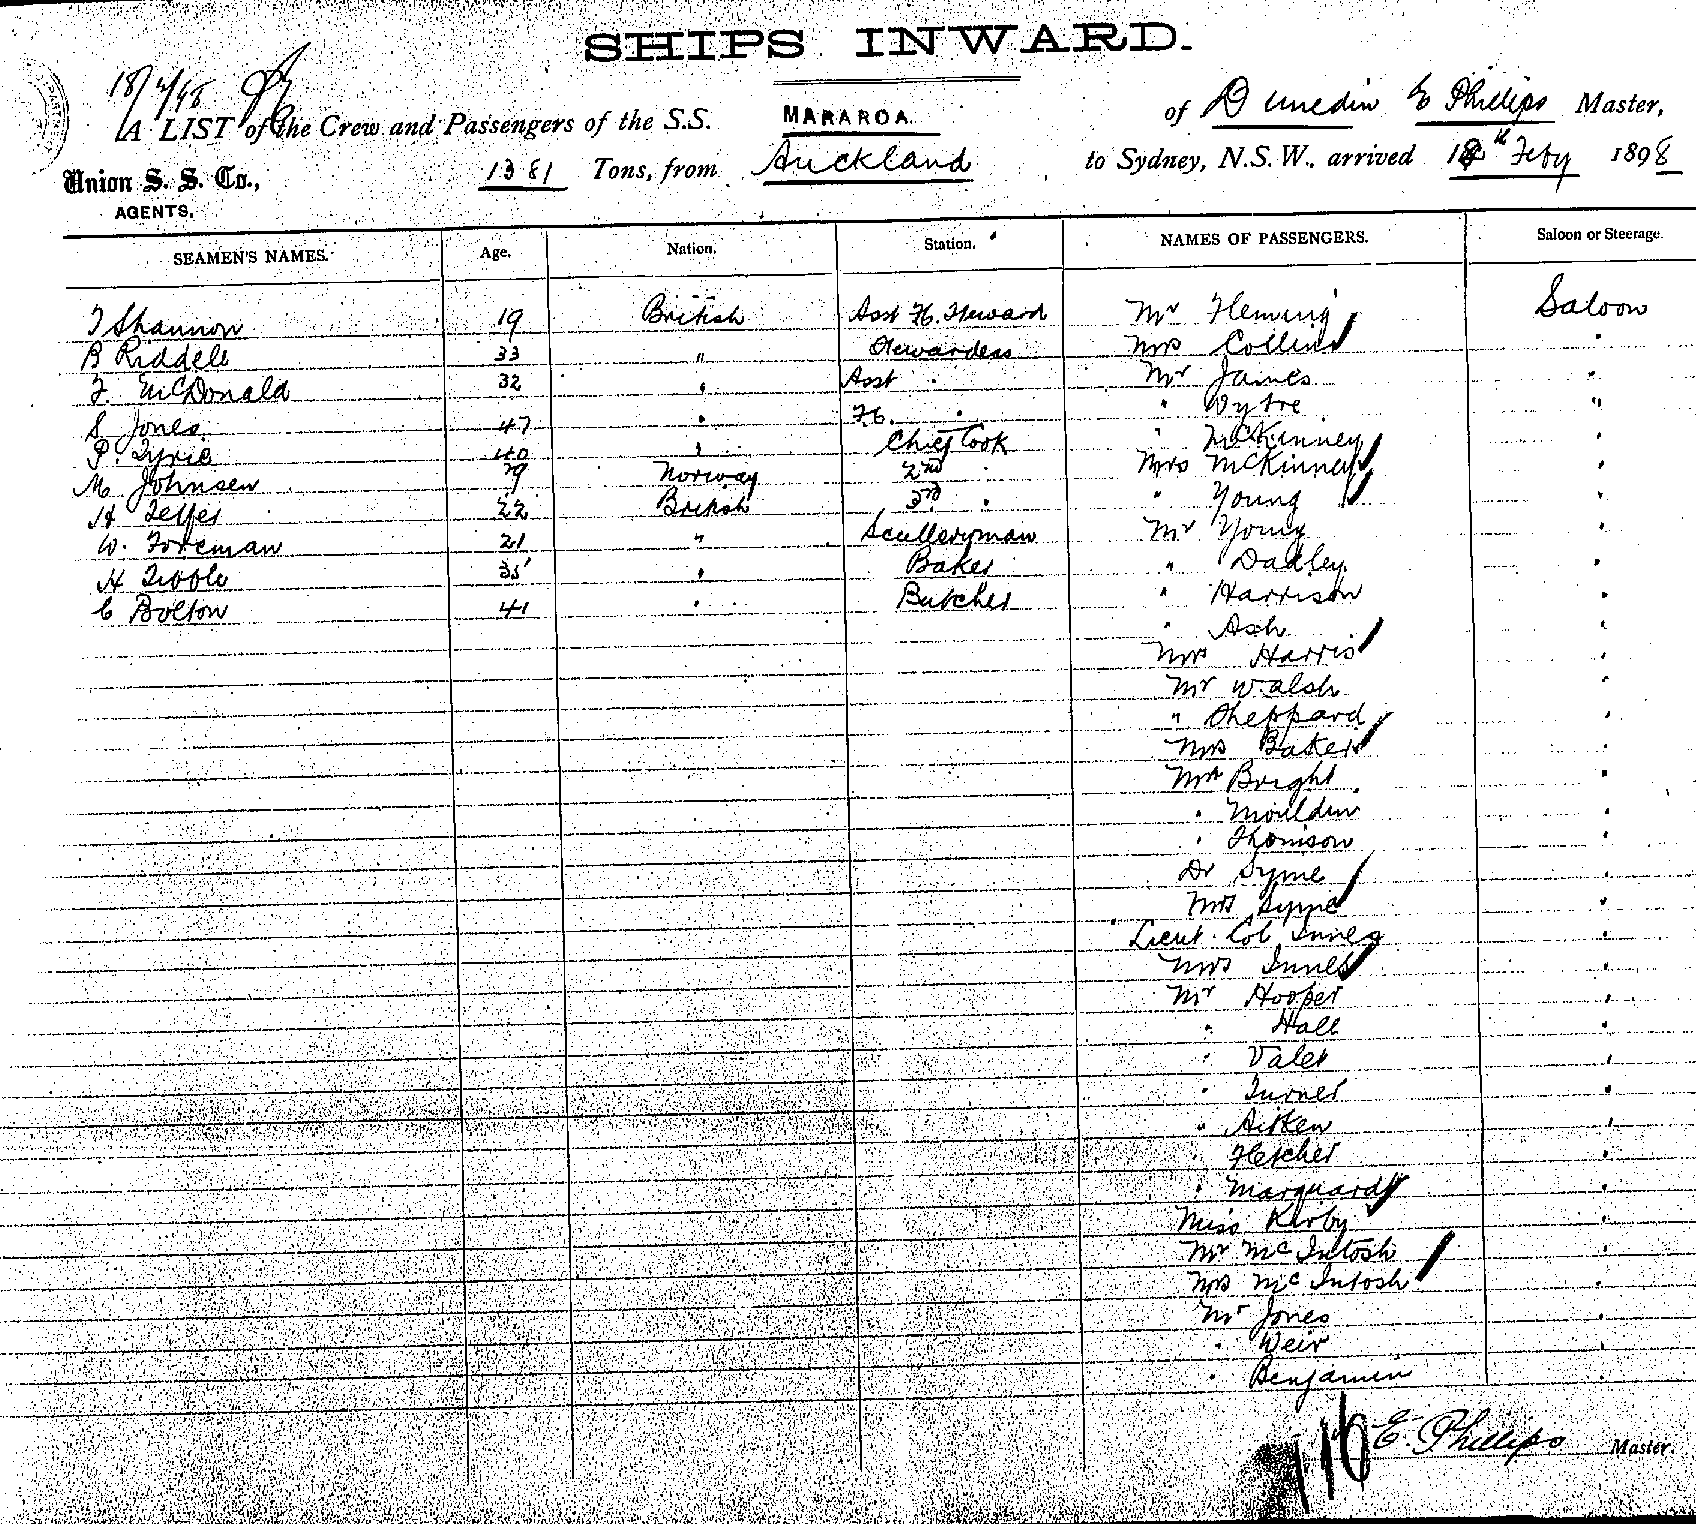 SHIPS INWARD.
18/2/98
A LIST of the Crew and Passengers of the S.S. MARAROA. of Dunedin E Phillips Master,
Union S. S. Co., AGENTS. 1381 Tons, from Auckland to Sydney, N.S.W., arrived 18th Feby 1898
SEAMEN'S NAMES. Age. Nation. Station. NAMES OF PASSENGERS. Saloon or Steerage.
Shannon 19 British Asst F.C. Steward Mr Fleming Saloon
B Riddell 33 " Stewardess Mrs Collins "
F. McDonald 32 " Asst " Mr James "
S Jones 47 " F.C. " " Wytre "
P. Tyrie 40 " Chief Cook " McKinney "
M Johnsen 29 Norway 2nd " Mrs McKinney "
H Telfer 22 British 3rd " " Young "
W. Foreman 21 " Sculleryman Mr Young "
H Tibble 35 " Baker " Dadley "
C Bolton 41 " Butcher " Harrison "
" Ash "
Mrs Harris "
Mr Walsh "
" Sheppard "
Mrs Baker "
Mr Bright "
" Mouldin "
" Thomson "
Dr Syme "
Mrs Syme "
Lieut. Col Innes "
Mrs Innes "
Mr Hooper "
" Hall "
" Valer "
" Turner "
" Aitken "
" Fletcher "
" Marquard "
Miss Kirby "
Mr McIntosh "
Mrs McIntosh "
Mr Jones "
" Weir "
" Benjamin
116 E. Phillips Master.